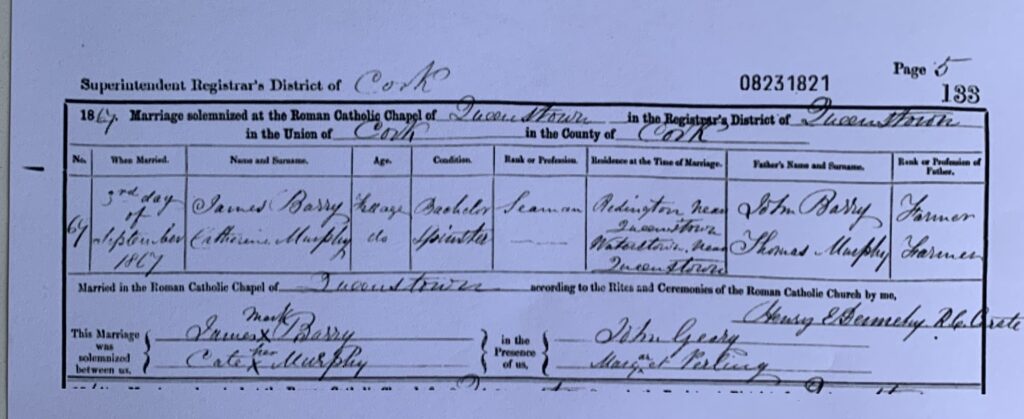 Page 5
Superintendent Registrar's District of Cork 08231821 133
1867 Marriage solemnized at the Roman Catholic Chapel of Queenstown in the Registrar's District of Queenstown
in the Union of Cork in the County of Cork
No. When Married. Name and Surname. Age. Condition. Rank or Profession. Residence at the Time of Marriage. Father's Name and Surname. Rank or Profession of Father.
69 3rd day of September 1867
James Barry Full age Bachelor Seaman Redington near Queenstown John Barry Farmer
Catherine Murphy do Spinster Waterstown near Queenstown Thomas Murphy Farmer
Married in the Roman Catholic Chapel of Queenstown according to the Rites and Ceremonies of the Roman Catholic Church by me,
Henry E R.C. Curate
This Marriage was solemnized between us, James x Barry mark
Cate x Murphy her
in the Presence of us, John Geary
Margaret